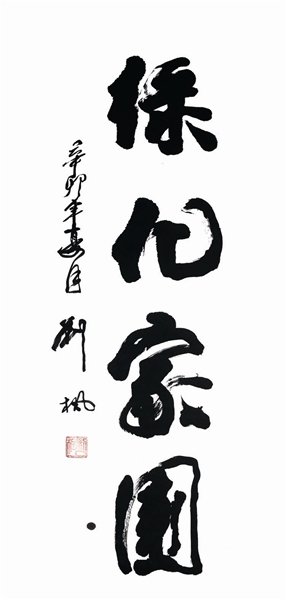 綠化家園
辛卯年夏月
劉楓